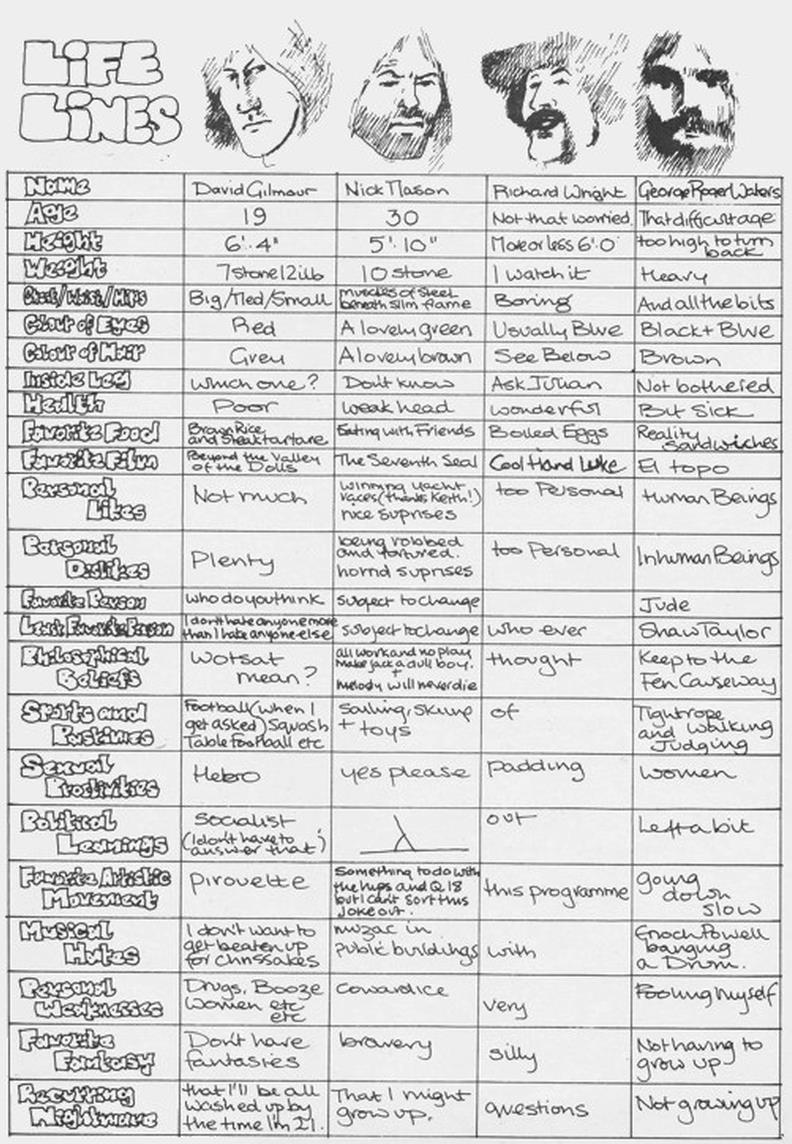 LIFE
LINES
Name David Gilmour Nick Mason Richard Wright George Roger Waters
Age 19 30 Not that worried. That difficult age
Height 6'.4" 5'.10" More or less 6'.0' too high to turn
back
Weight 7 stone 12 lb 10 stone I watch it Heavy
Chest/Waist/Hips Big/Med/Small muscles of steel Boring And all the bits
beneath slim frame
Colour of Eyes Red A lovely green Usually Blue Black + Blue
Colour of Hair Grey A lovely brown See Below Brown
Inside Leg which one? Don't know Ask Julian Not bothered
Health Poor weak head wonderful But Sick
Favorite Food Brown Rice Eating with Friends Boiled Eggs Reality
and Steak tartare sandwiches
Favorite Film Beyond the Valley The Seventh Seal Cool Hand Luke El topo
of the Dolls
Personal Not much winning yacht too Personal Human Beings
Likes races (thanks Keith!)
nice suprises
Personal Plenty being robbed too Personal Inhuman Beings
Dislikes and tortured.
horrid suprises
Favorite Person who do you think subject to change Jude
Least Favorite Person I don't hate anyone more subject to change who ever Shaw Taylor
than I hate anyone else
Philosophical Wotsat all work and no play thought Keep to the
Beliefs mean? make jack a dull boy. Fen Causeway
+
melody will never die
Sports and Football (when I sailing, skiing of Tightrope
Pastimes get asked) Squash + toys and walking
Table football etc Judging
Sexual Hetro yes please padding women
Proclivities
Political Socialist out Left a bit
Leanings (I don't have to
answer that)
Favorite Artistic Pirouette Something to do with this programme going
Movement the hips and Q.18 down
but I can't sort this slow
joke out.
Musical I don't want to muzac in with Enoch Powell
Hates get beaten up public buildings banging
for chrissakes a Drum.
Personal Drugs, Booze cowardice very Fooling myself
Weaknesses women etc
etc
Favorite Don't have bravery silly Not having to
Fantasy fantasies grow up
Recurring that I'll be all That I might questions Not growing up
Nightmare washed up by grow up.
the time I'm 21.